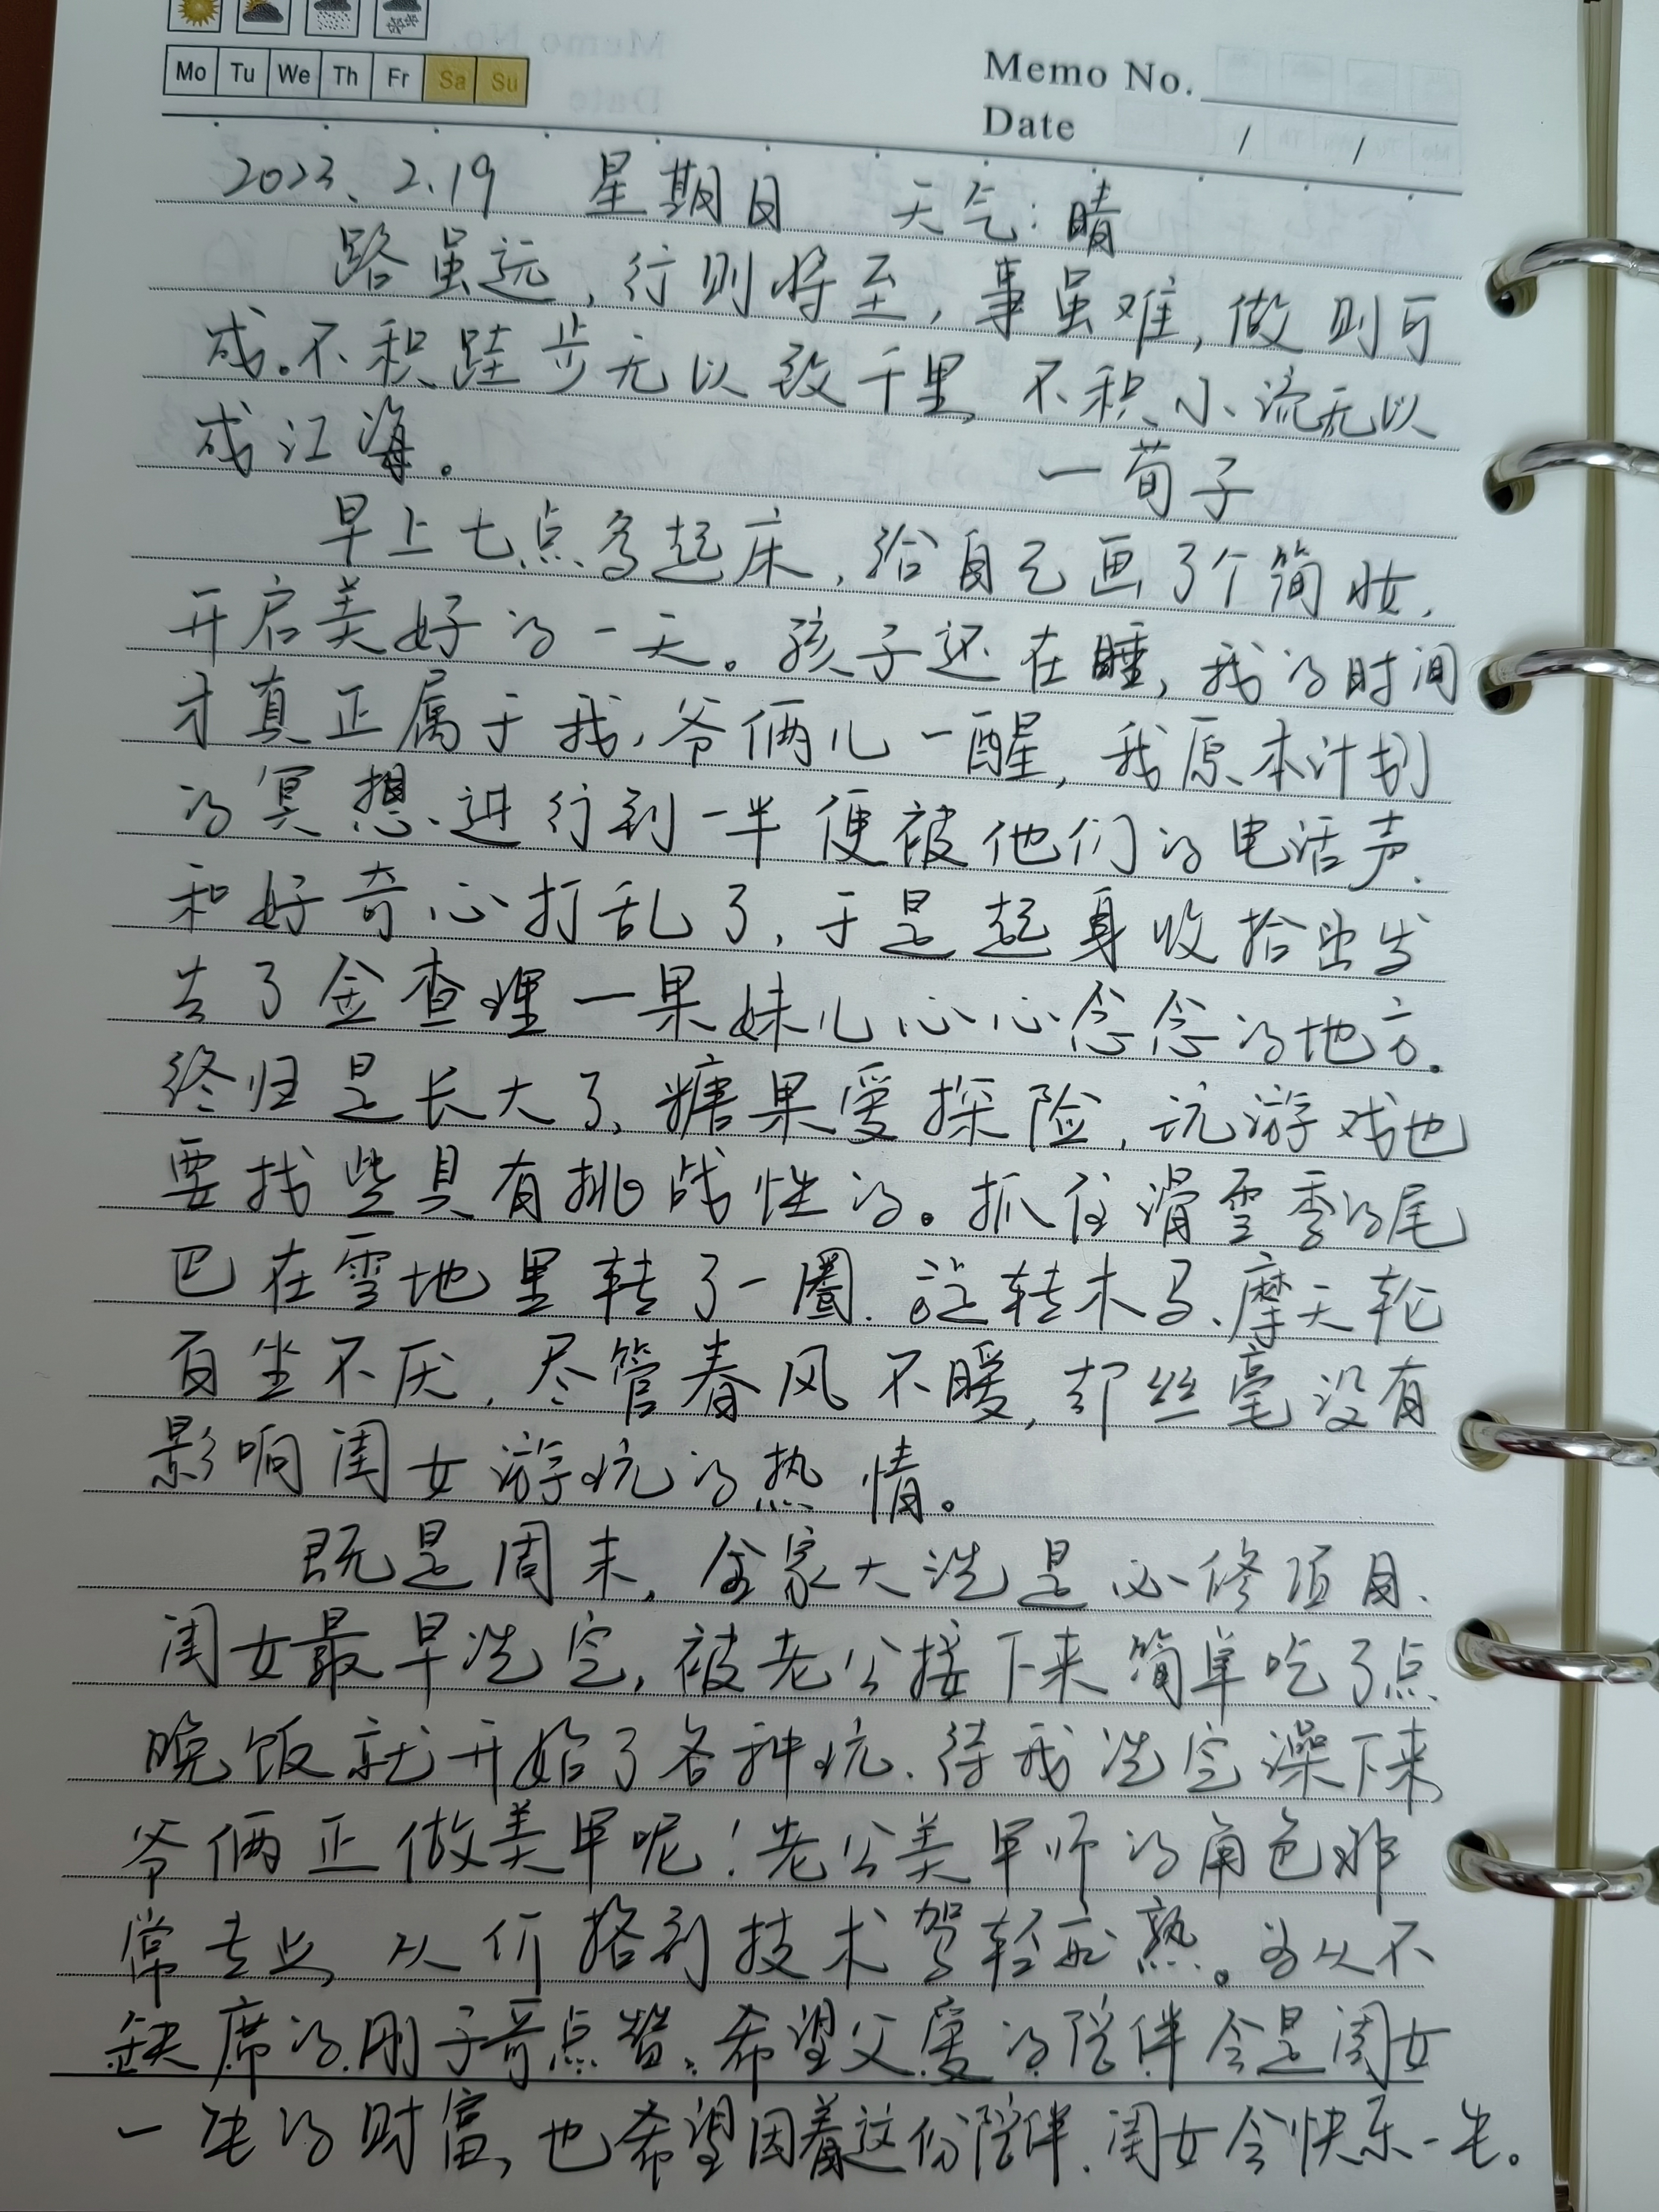 Mo Tu We Th Fr Sa Su
Memo No.
Date / /
2023、2.19 星期日 天气:晴
路虽远,行则将至,事虽难,做则可
成。不积跬步无以致千里,不积小流无以
成江海。 一荀子
早上七点多起床,给自己画了个简妆,
开启美好的一天。孩子还在睡,我的时间
才真正属于我,爷俩儿一醒,我原本计划
的冥想、进行到一半便被他们的电话声、
和好奇心打乱了,于是起身收拾出发
去了金查理一果妹儿心心念念的地方。
终归是长大了,糖果爱探险,玩游戏也
要找些具有挑战性的。抓住滑雪季的尾
巴在雪地里转了一圈.旋转木马、摩天轮
百坐不厌,尽管春风不暖,却丝毫没有
影响闺女游玩的热情。
既是周末,全家大洗是必修项目、
闺女最早洗完,被老公接下来简单吃了点
晚饭就开始了各种玩、待我洗完澡下来
爷俩正做美甲呢!老公美甲师的角色非
常专业,从价格到技术驾轻就熟。为从不
缺席的刚子哥点赞。希望父爱的陪伴会是闺女
一生的财富,也希望因着这份陪伴.闺女会快乐一生。